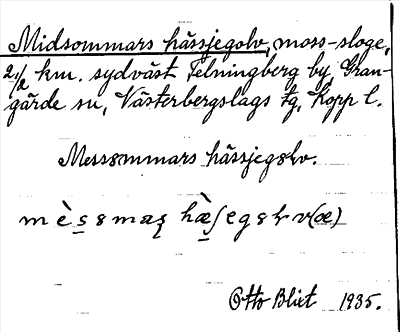 Midsommars hässjegolv, moss-sloge,
2 1/2 km. sydväst Telningberg by, Gran-
gärde sn, Västerbergslags tg, Kopp l.
Messsmmars hässjegslv.
mès̲smaʂ hæ̀ʃegslv(æ)
Otto Blixt 1935.